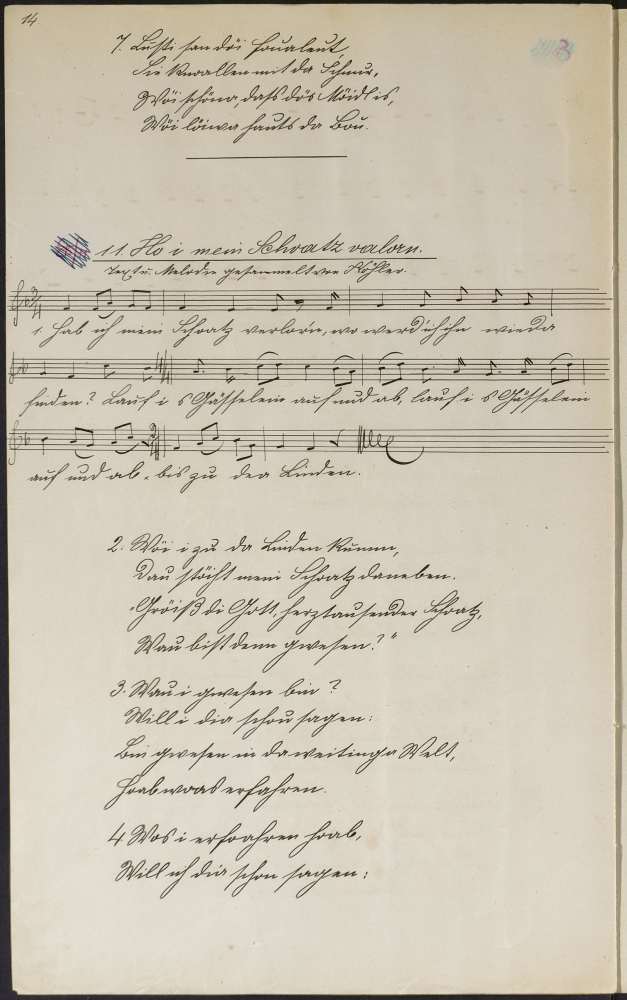 14
7. Lusti san döi Foualeut,
Sie knallen mit da Schnur,
Wöi schöna, dass dös Möidl is,
Wöi löiwa hauts da Bou.
11. Ho i mein Schoatz valorn.
Text u. Melodie gesammelt von Köhler.
3/4
1. Hab ich mein Schoatz verlor'n, wo werd' ich ihn wieda
finden? Lauf i s Gässelein auf und ab, lauf i s Gässelein
auf und ab, bis zu der Linden.
2. Wöi i zu da Linden kumm,
Dau stöiht mein Schoatz daneben.
"Gröiß di Gott, herztausender Schoatz,
Wau bist denn gwesen?"
3. Wau i gwesen bin?
Will i dia schou sagen:
Bin gwesen in da weitinga Welt,
Hoab woas erfahren.
4 Wos i erfoahren hoab,
Will ich dia schon sagen: